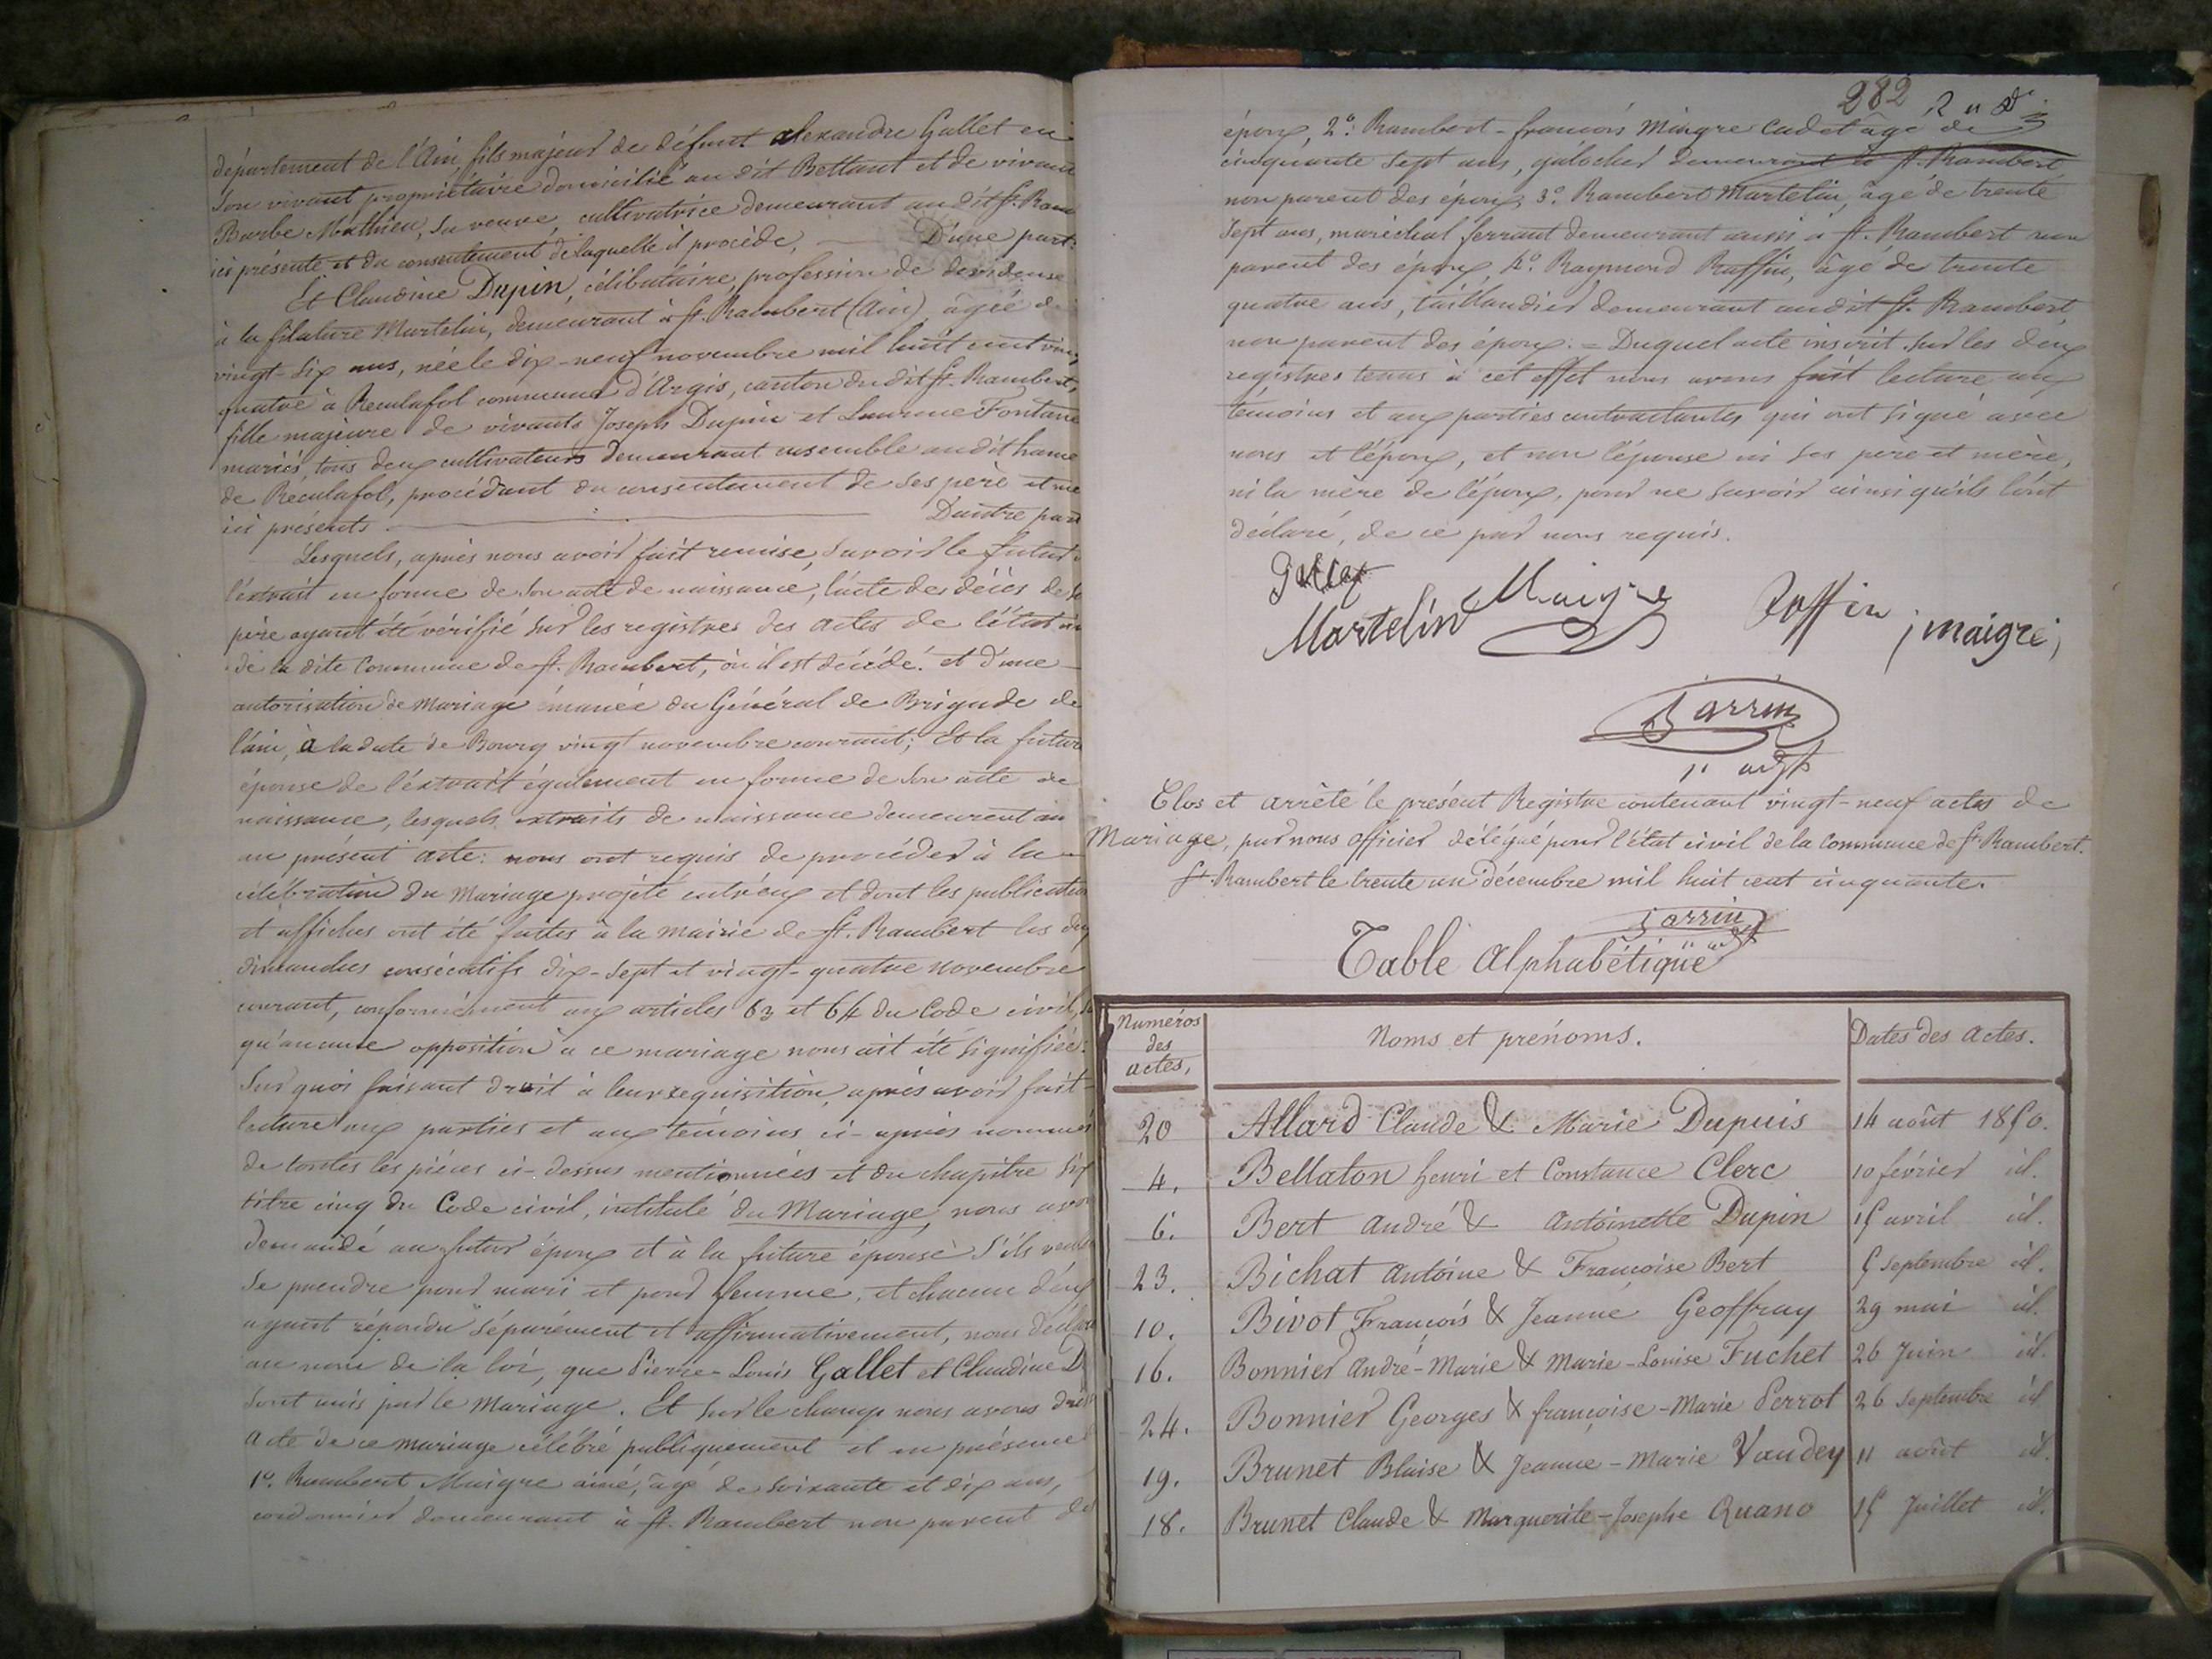 département de l'Ain, fils majeur de défunt alexandre Gallet en
son vivant propriétaire domicilié au dit Bettant et de vivante
Barbe Mathieu, sa veuve, cultivatrice demeurant au dit St. Ram
ici présente et du consentement de laquelle il procède, D'une part.
Et Claudine Dupin, célibataire, profession de dévideuse
à la filature Martelin, demeurant à St. Rambert (Ain), âgée de
vingt-six ans, née le dix-neuf novembre mil huit cent vingt
quatre à Reculafol commune d'Argis, canton du dit St. Rambert,
fille majeure de vivants Joseph Dupin et Laurence Fontane
mariés, tous deux cultivateurs demeurant ensemble au dit hame
de Réculafol, procédant du consentement de ses père et mè
ici présents. D'autre part
Lesquels, après nous avoir fait remise, savoir le futur
l'extrait en forme de son acte de naissance, l'acte des décès de
père ayant été vérifié sur les registres des actes de l'état
de la dite Commune de St. Rambert, où il est décédé. et d'une
autorisation de Mariage émanée du Général de Brigade de
l'ain, à la date de Bourg vingt novembre courant; Et la future
épouse de l'extrait également en forme de son acte de
naissance, lesquels extraits de naissance demeurent an
au présent acte: nous ont requis de procéder à la
célébration du Mariage projeté entr'eux et dont les publication
et affiches ont été faites à la mairie de St. Rambert les deux
dimanches consécutifs dix-sept et vingt-quatre novembre
courant, conformément aux articles 63 et 64 du Code civil,
qu'aucune opposition à ce mariage nous ait été signifiée.
Sur quoi faisant droit à leur requisition, après avoir fait
lecture aux parties et aux témoins ci-après nommés
de toutes les pièces ci-dessus mentionnées et du chapitre six
titre cinq du Code civil, intitulé du Mariage, nous avons
demandé au futur époux et à la future épouse s'ils veulent
se prendre pour mari et pour femme, et chacun d'eux
ayant répondu séparément et affirmativement, nous déclar
au nom de la loi, que Pierre-Louis Gallet et Claudine D
sont unis par le Mariage. Et sur le champ nous avons dressé
acte de ce mariage célébré publiquement et en présence
1º. Rambert Maigre ainé, âgé de soixante et dix ans,
cordonnier demeurant à St. Rambert non parent des
282
époux, 2º. Rambert-françois Maigre Cadet âgé de
cinquante sept ans, galocher demeurant à St. Rambert
non parent des époux, 3º. Rambert Martelin, âgé de trente
sept ans, maréchal ferrant demeurant aussi à St. Rambert non
parent des époux, 4º. Raymond Ruffin, âgé de trente
quatre ans, taillandier demeurant au dit St. Rambert,
non parent des époux. = Duquel acte inscrit sur les deux
registres tenus à cet effet nous avons fait lecture aux
témoins et aux parties contractantes qui ont signé avec
nous et l'époux, et non l'épouse ni ses père et mère,
ni la mère de l'époux, pour ne savoir ainsi qu'ils l'ont
déclaré, de ce par nous requis.
Martelin Maigre Roffin maigre
Sarrin
Clos et arrêté le présent Registre contenant vingt-neuf actes de
Mariage, par nous officier délégué pour l'état civil de la Commune de St. Rambert.
St. Rambert le trente un décembre mil huit cent cinquante.
Sarrin
Table Alphabétique
Numéros des actes, Noms et prénoms. Dates des actes.
20 Allard Claude & Marie Dupuis 14 août 1850.
4. Bellaton henri et Constance Clerc 10 février id.
6. Bert André & Antoinette Dupin 15 avril id.
23. Bichat Antoine & Françoise Bert 5 Septembre id.
10. Bivot François & Jeanne Geoffray 29 mai id.
16. Bonnier André-Marie & Marie-Louise Fuchet 26 Juin id.
24. Bonnier Georges & françoise-Marie Perrot 26 Septembre id
19. Brunet Blaise & Jeanne-Marie Vaudey 11 août id.
18. Brunet Claude & Marguerite-Josephe Quano 15 Juillet id.